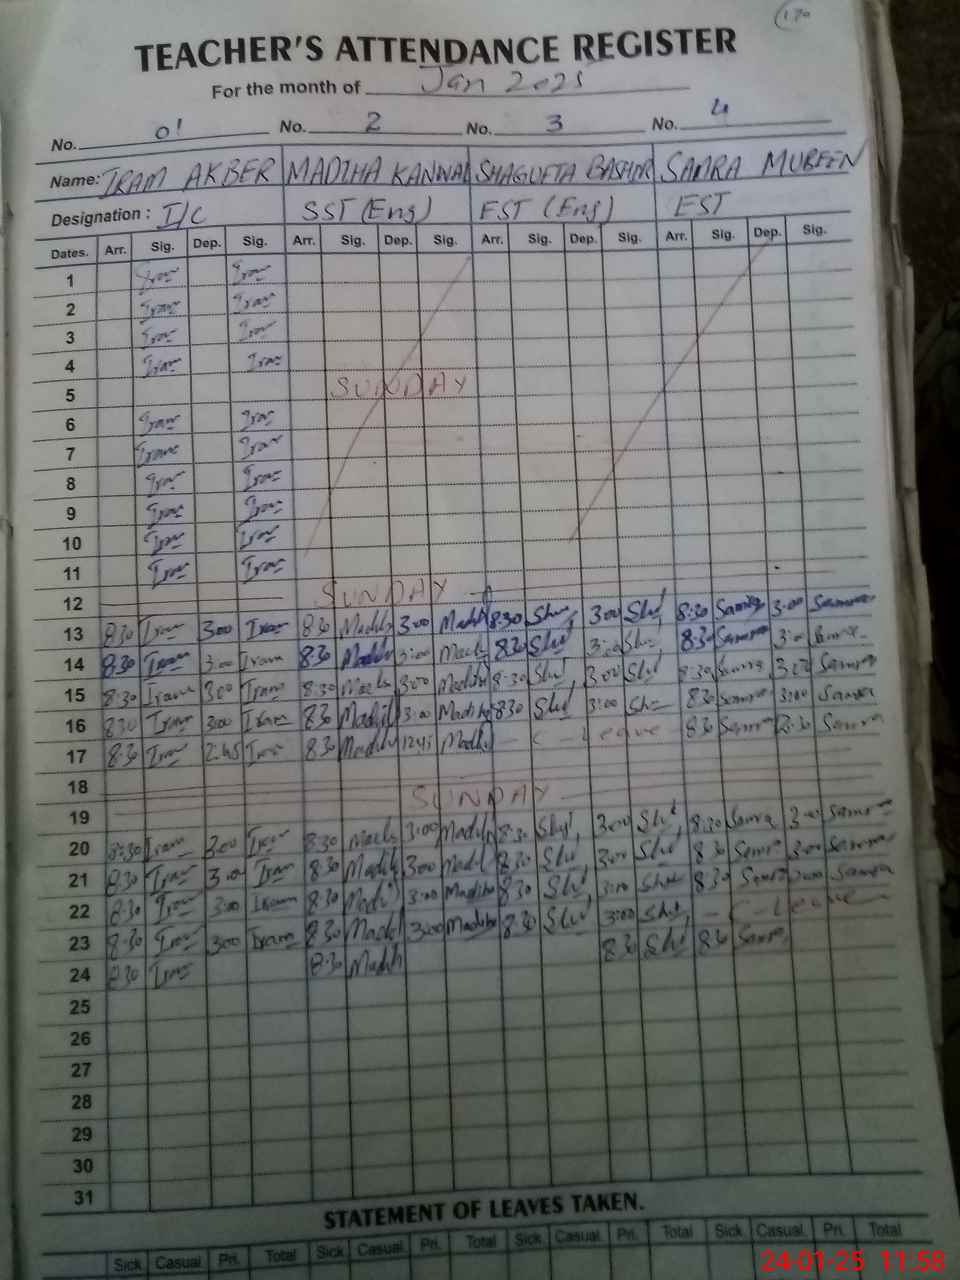 170
TEACHER'S ATTENDANCE REGISTER
For the month of Jan 2025
No. 01 No. 2 No. 3 No. 4
Name: IRAM AKBER MADIHA KANWAL SHAGUFTA BASHIR SAMRA MUBEEN
Designation: I/C SST (Eng) EST (Eng) EST
Dates. Arr. Sig. Dep. Sig. Arr. Sig. Dep. Sig. Arr. Sig. Dep. Sig. Arr. Sig. Dep. Sig.
1 Iram Iram
2 Iram Iram
3 Iram Iram
4 Iram Iram
5 SUNDAY
6 Iram Iram
7 Iram Iram
8 Iram Iram
9 Iram Iram
10 Iram Iram
11 Iram Iram
12 SUNDAY
13 8:30 Iram 3:00 Iram 8:30 Madiha 3:00 Madih 8:30 3:00 8:30 Samra 3:00 Samra
14 8:30 Iram 3:00 Iram 8:30 Madiha 3:00 Madh 8:30 3:00 8:30 Samra 3:00 Samra
15 8:30 Iram 3:00 Iram 8:30 Madh 3:00 Madiha 8:30 3:00 8:30 Samra 3:00 Samra
16 8:30 Iram 3:00 Iram 8:30 Madih 3:00 Madiha 8:30 3:00 8:30 Samra 3:00 Samra
17 8:30 Iram 2:45 Iram 8:30 Madiha 12:45 Madh - C - Leave - 8:30 Samra 2:30 Samra
18
19 SUNDAY
20 8:30 Iram 3:00 Iram 8:30 Madh 3:00 Madiha 8:30 3:00 8:30 Samra 3:00 Samra
21 8:30 Iram 3:00 Iram 8:30 Madih 3:00 Madih 8:30 3:00 8:30 Samra 3:00 Samra
22 8:30 Iram 3:00 Iram 8:30 Madh 3:00 Madiha 8:30 3:00 8:30 Samra 3:00 Samra
23 8:30 Iram 3:00 Iram 8:30 Madh 3:00 Madiha 8:30 3:00 - C - Leave -
24 8:30 Iram 8:30 Madih 8:30 8:30 Samra
25
26
27
28
29
30
31
STATEMENT OF LEAVES TAKEN.
Sick Casual Pri. Total Sick Casual Pri. Total Sick Casual Pri. Total Sick Casual Pri. Total
24-01-25 11:58